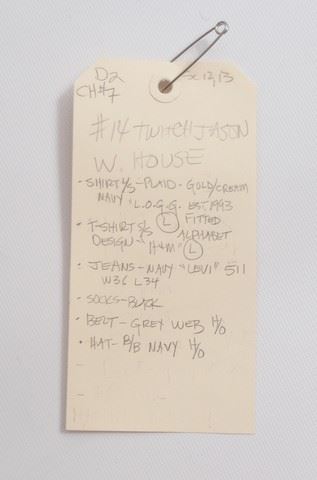 D2
CH#7
SC 12, 13
#14 TWITCH JASON
W. HOUSE
• SHIRT S/S - PLAID - GOLD/CREAM
NAVY "L.O.G.G. EST. 1993
• T-SHIRT S/S (L) FITTED
DESIGN - "H&M" ALPHABET (L)
• JEANS - NAVY "LEVI" 511
W36 L34
• SOCKS - BLACK
• BELT - GREY WEB H/O
• HAT - B/B NAVY H/O